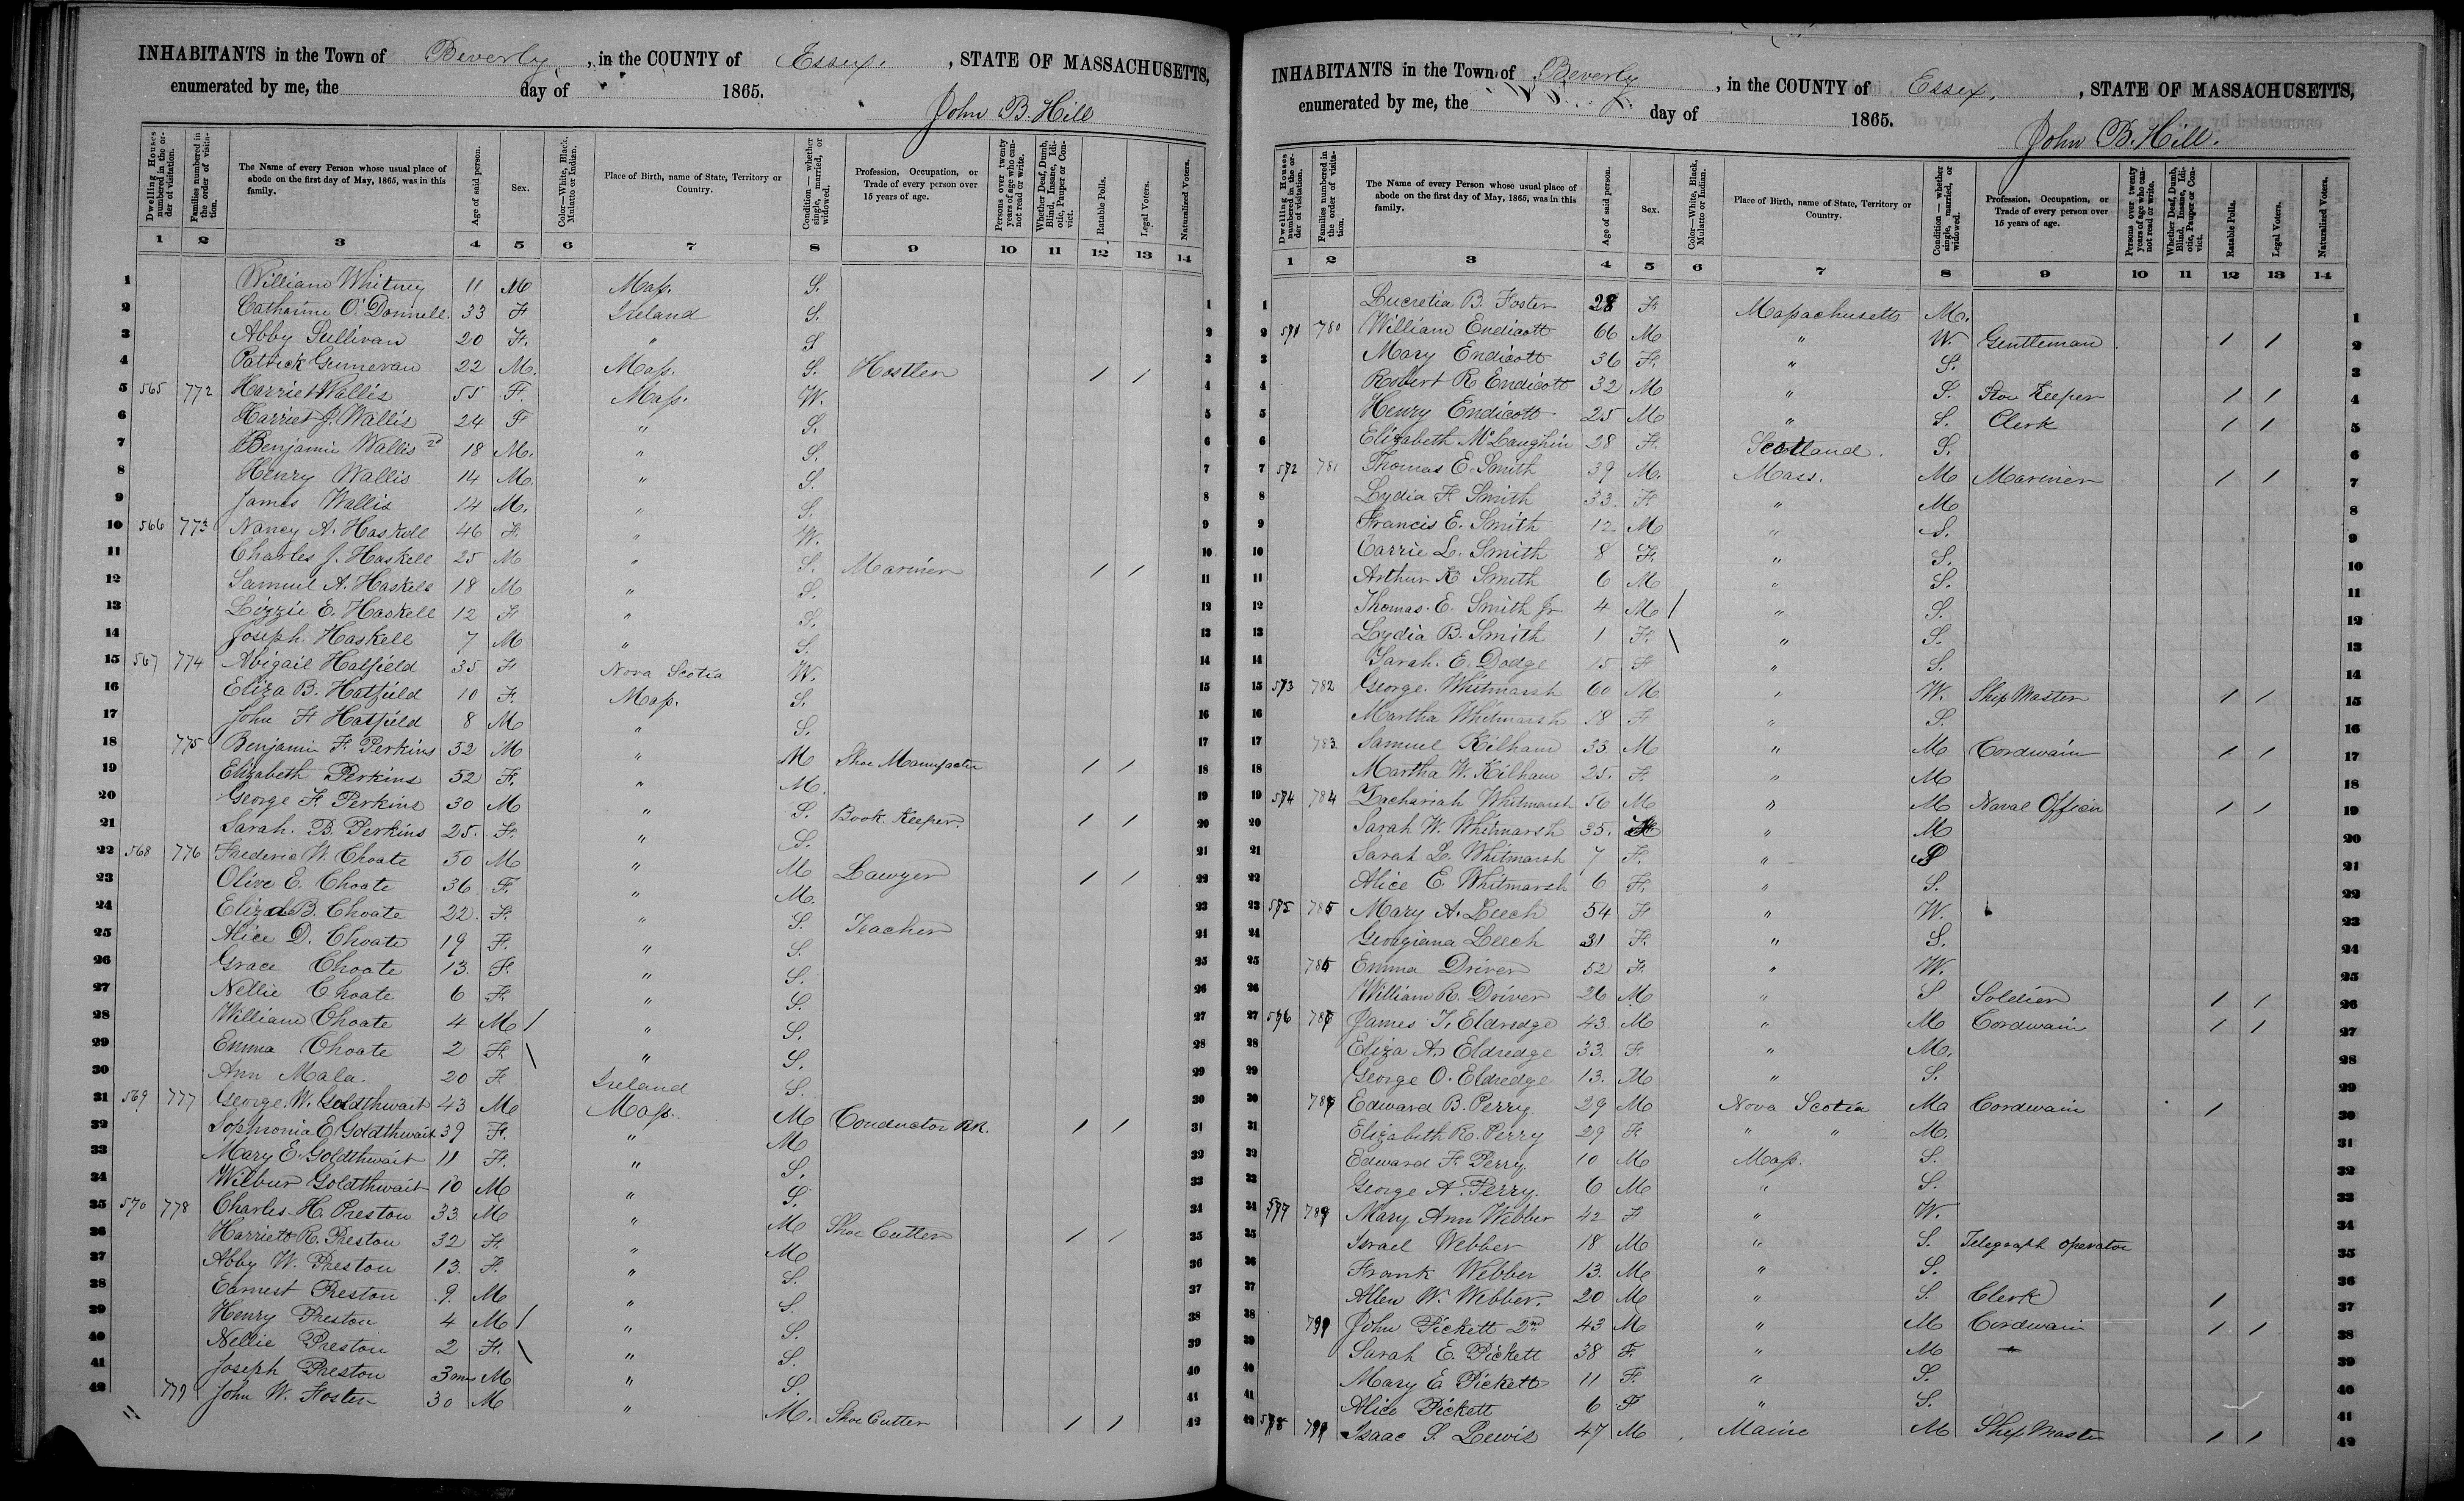 INHABITANTS in the Town of Beverly, in the COUNTY of Essex, STATE OF MASSACHUSETTS,
enumerated by me, the day of 1865.
John B. Hill
Dwelling Houses numbered in the order of visitation.
Families numbered in the order of visitation.
The Name of every Person whose usual place of abode on the first day of May, 1865, was in this family.
Age of said person.
Sex.
Color—White, Black, Mulatto or Indian.
Place of Birth, name of State, Territory or Country.
Condition — whether single, married, or widowed.
Profession, Occupation, or Trade of every person over 15 years of age.
Persons over twenty years of age who cannot read or write.
Whether Deaf, Dumb, Blind, Insane, Idiotic, Pauper or Convict.
Ratable Polls.
Legal Voters.
Naturalized Voters.
1 2 3 4 5 6 7 8 9 10 11 12 13 14
1 William Whitney 11 M Mass. S. 1
2 Catharine O'Donnell. 33 F Ireland S. 2
3 Abby Sullivan 20 F. " S 3
4 Patrick 22 M. Mass. S. Hostler / / 4
5 565 772 Harriet Wallis 55 F. Mass. W. 5
6 Harriet J. Wallis 24 F " S. 6
7 Benjamin Wallis 2d 18 M. " S. 7
8 Henry Wallis 14 M. " S. 8
9 James Wallis 14 M. " S. 9
10 566 773 Nancy A. Haskell 46 F. " W. 10
11 Charles J. Haskell 25 M " S. Mariner / / 11
12 Samuel A. Haskell 18 M " S. 12
13 Lizzie E. Haskell 12 F " S. 13
14 Joseph Haskell 7 M " S. 14
15 567 774 Abigail Hatfield 35 F Nova Scotia W. 15
16 Eliza B. Hatfield 10 F. Mass. S. 16
17 John F Hatfield 8 M " S. 17
18 775 Benjamin F. Perkins 52 M " M Shoe Manufactr / / 18
19 Elizabeth Perkins 52 F. " M. 19
20 George F. Perkins 30 M " S. Book Keeper. / / 20
21 Sarah. B. Perkins 25. F. " S. 21
22 568 776 Frederic W. Choate 50 M " M Lawyer / / 22
23 Olive E. Choate 36 F. " M. 23
24 B. Choate 22. F. " S. Teacher 24
25 Alice D. Choate 19 F. " S. 25
26 Grace Choate 13. F. " S. 26
27 Nellie Choate 6 F. " S. 27
28 William Choate 4 M / " S. 28
29 Emma Choate 2 F. \ " S. 29
30 Ann Mala. 20 F Ireland S. 30
31 569 777 George. W. Goldthwait 43 M Mass. M Conductor RR. / / 31
32 Sophronia E. Goldthwait 39 F. " M 32
33 Mary E. Goldthwait 11 F. " S. 33
34 Wilbur Goldthwait 10 M " S. 34
35 570 778 Charles H. Preston 33. M " M Shoe Cutter / / 35
36 Harriett R. Preston 32 F. " M 36
37 Abby W. Preston 13. F. " S. 37
38 Earnest Preston 9. M " S. 38
39 Henry Preston 4 M / " S. 39
40 Nellie Preston 2 F. \ " S. 40
41 Joseph Preston 3 mos M " S. 41
42 779 John W. Foster 30 M " M. Shoe Cutter / / 42
INHABITANTS in the Town of Beverly, in the COUNTY of Essex, STATE OF MASSACHUSETTS,
enumerated by me, the day of 1865.
John B. Hill.
Dwelling Houses numbered in the order of visitation.
Families numbered in the order of visitation.
The Name of every Person whose usual place of abode on the first day of May, 1865, was in this family.
Age of said person.
Sex.
Color—White, Black, Mulatto or Indian.
Place of Birth, name of State, Territory or Country.
Condition — whether single, married, or widowed.
Profession, Occupation, or Trade of every person over 15 years of age.
Persons over twenty years of age who cannot read or write.
Whether Deaf, Dumb, Blind, Insane, Idiotic, Pauper or Convict.
Ratable Polls.
Legal Voters.
Naturalized Voters.
1 2 3 4 5 6 7 8 9 10 11 12 13 14
1 Lucretia B. Foster 28 F. Massachusetts M. 1
2 571 780 William Endicott 66 M " W. Gentleman / / 2
3 Mary Endicott 36 F. " S. 3
4 Robert R Endicott 32 M " S. Stove Keeper / / 4
5 Henry Endicott 25 M " S. Clerk / / 5
6 Elizabeth McLaughlin 28 F. Scotland. S. 6
7 572 781 Thomas E. Smith 39 M. Mass. M Mariner / / 7
8 Lydia F. Smith 33. F. " M 8
9 Francis E. Smith 12 M " S. 9
10 Carrie L. Smith 8 F. " S. 10
11 Arthur K Smith 6 M " S. 11
12 Thomas. E. Smith Jr. 4 M / " S. 12
13 Lydia B. Smith 1 F. \ " S. 13
14 Sarah. E. Dodge 15 F " S. 14
15 573 782 George. Whitmarsh 60 M " W. Ship Master / / 15
16 Martha Whitmarsh 18 F " S. 16
17 783 Samuel Kilham 33. M " M Cordwain / / 17
18 Martha W. Kilham 25. F. " M 18
19 574 784 Zachariah Whitmarsh 56 M " M Naval Officer / / 19
20 Sarah W. Whitmarsh 35. " M 20
21 Sarah L. Whitmarsh 7 F. " S 21
22 Alice E. Whitmarsh 6 F. " S. 22
23 575 785 Mary A. Leech 54 F " W. 23
24 Georgiana Leech 31 F. " S. 24
25 Emma Driver 52 F. " W. 25
26 William R. Driver 26 M " S Soldier / / 26
27 576 James T. Eldredge 43 M " M Cordwain / / 27
28 Eliza A. Eldredge 33. F " M. 28
29 George O. Eldredge 13. M " S. 29
30 Edward B. Perry. 29 M Nova Scotia M Cordwain / 30
31 Elizabeth R. Perry 29 F. " " M. 31
32 Edward F. Perry. 10 M Mass. S. 32
33 George A. Perry. 6 M " S. 33
34 577 789 Mary Ann Webber 42 F " W. 34
35 Israel Webber 18 M " S. Telegraph operator 35
36 Frank Webber 13. M " S. 36
37 Allen W. Webber. 20 M " S Clerk / 37
38 John Pickett 2nd 43 M " M Cordwain / / 38
39 Sarah E. Pickett 38 F. " M 39
40 Mary E Pickett 11 F. " S. 40
41 Alice Pickett 6 F " S. 41
42 578 Isaac S. Lewis 47 M Maine M Ship Master / / 42